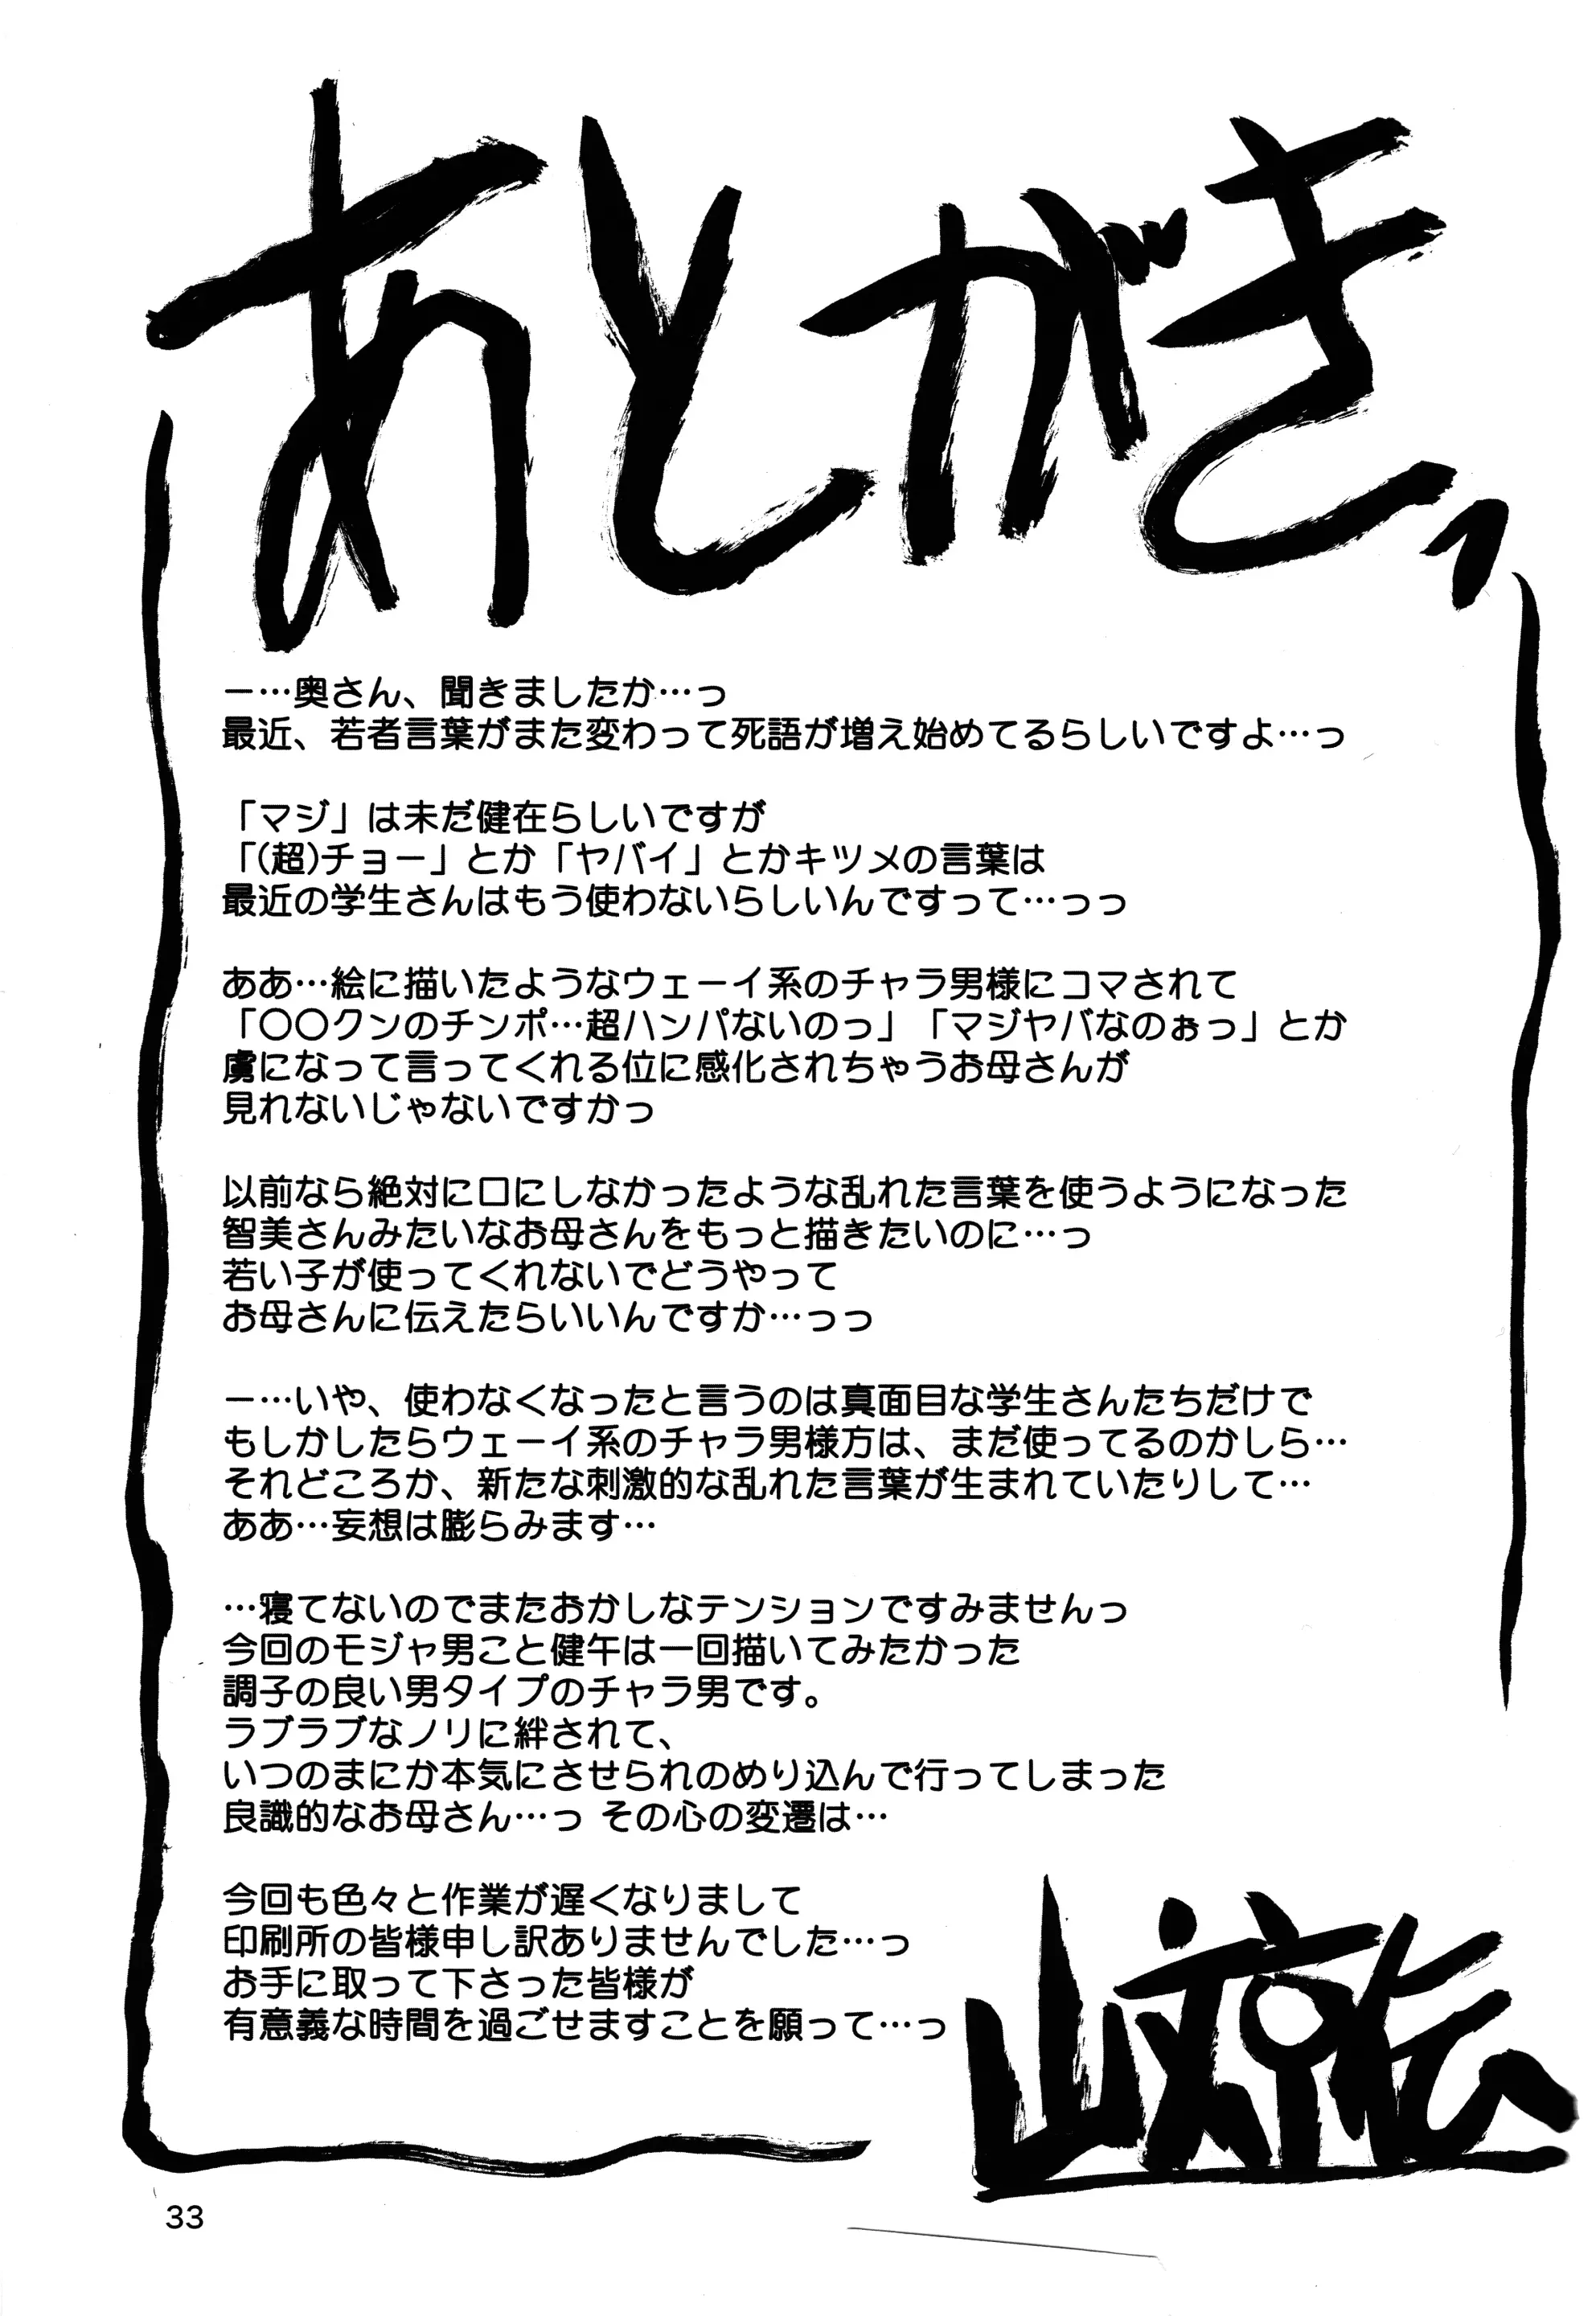 あとがきっ
－…奥さん、聞きましたか…っ
最近、若者言葉がまた変わって死語が増え始めてるらしいですよ…っ
「マジ」は未だ健在らしいですが
「(超)チョー」とか「ヤバイ」とかキツメの言葉は
最近の学生さんはもう使わないらしいんですって…っっ
ああ…絵に描いたようなウェーイ系のチャラ男様にコマされて
「〇〇クンのチンポ…超ハンパないのっ」「マジヤバなのぉっ」とか
虜になって言ってくれる位に感化されちゃうお母さんが
見れないじゃないですかっ
以前なら絶対に口にしなかったような乱れた言葉を使うようになった
智美さんみたいなお母さんをもっと描きたいのに…っ
若い子が使ってくれないでどうやって
お母さんに伝えたらいいんですか…っっ
－…いや、使わなくなったと言うのは真面目な学生さんたちだけで
もしかしたらウェーイ系のチャラ男様方は、まだ使ってるのかしら…
それどころか、新たな刺激的な乱れた言葉が生まれていたりして…
ああ…妄想は膨らみます…
…寝てないのでまたおかしなテンションですみませんっ
今回のモジャ男こと健午は一回描いてみたかった
調子の良い男タイプのチャラ男です。
ラブラブなノリに絆されて、
いつのまにか本気にさせられのめり込んで行ってしまった
良識的なお母さん…っ その心の変遷は…
今回も色々と作業が遅くなりまして
印刷所の皆様申し訳ありませんでした…っ
お手に取って下さった皆様が
有意義な時間を過ごせますことを願って…っ
33